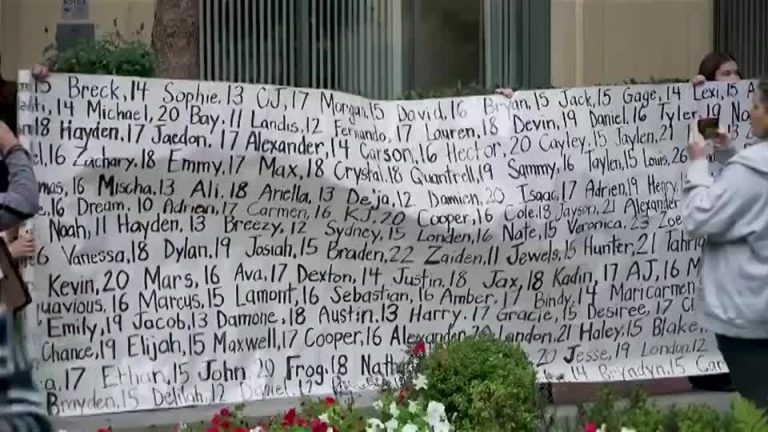 15 Breck, 14 Sophie, 13 CJ, 17 Morgan, 15 David, 16 Bryan, 15 Jack, 15 Gage, 14 Lexi, 15
14 Michael, 20 Bay, 11 Landis, 12 Fernando, 17 Lauren, 18 Devin, 19 Daniel, 16 Tyler, 19
18 Hayden, 17 Jaedon, 17 Alexander, 14 Carson, 16 Hector, 20 Cayley, 15 Jaylen, 21
16 Zachary, 18 Emmy, 17 Max, 18 Crystal, 18 Quantrell, 19 Sammy, 16 Taylen, 15 Louis,
16 Mischa, 13 Ali, 18 Ariella, 13 De'ja, 12 Damien, 20 Isaac, 17 Adrien, 19 Henry,
16 Dream, 10 Adrian, 17 Carmen, 16 KJ, 20 Cooper, 16 Cole, 18 Jayson, 21 Alexander
Noah, 11 Hayden, 13 Breezy, 12 Sydney, 15 Londen, 16 Nate, 15 Veronica, 23 Zoe
Vanessa, 18 Dylan, 19 Josiah, 15 Braden, 22 Zaiden, 11 Jewels, 15 Hunter, 21
Kevin, 20 Mars, 16 Ava, 17 Dexton, 14 Justin, 18 Jax, 18 Kadin, 17 AJ, 16
16 Marcus, 15 Lamont, 16 Sebastian, 16 Amber, 17 Bindy, 14 Maricarmen
Emily, 19 Jacob, 13 Damone, 18 Austin, 13 Harry, 17 Gracie, 15 Desiree, 17
Chance, 19 Elijah, 15 Maxwell, 17 Cooper, 16 Alexander, 20 Landon, 21 Haley, 15 Blake,
17 Ethan, 15 John, 20 Frog, 18 20 Jesse, 19 London, 12
Brayden, 15 Delilah, 12 Daniel, 12 14 Brydyn, 15